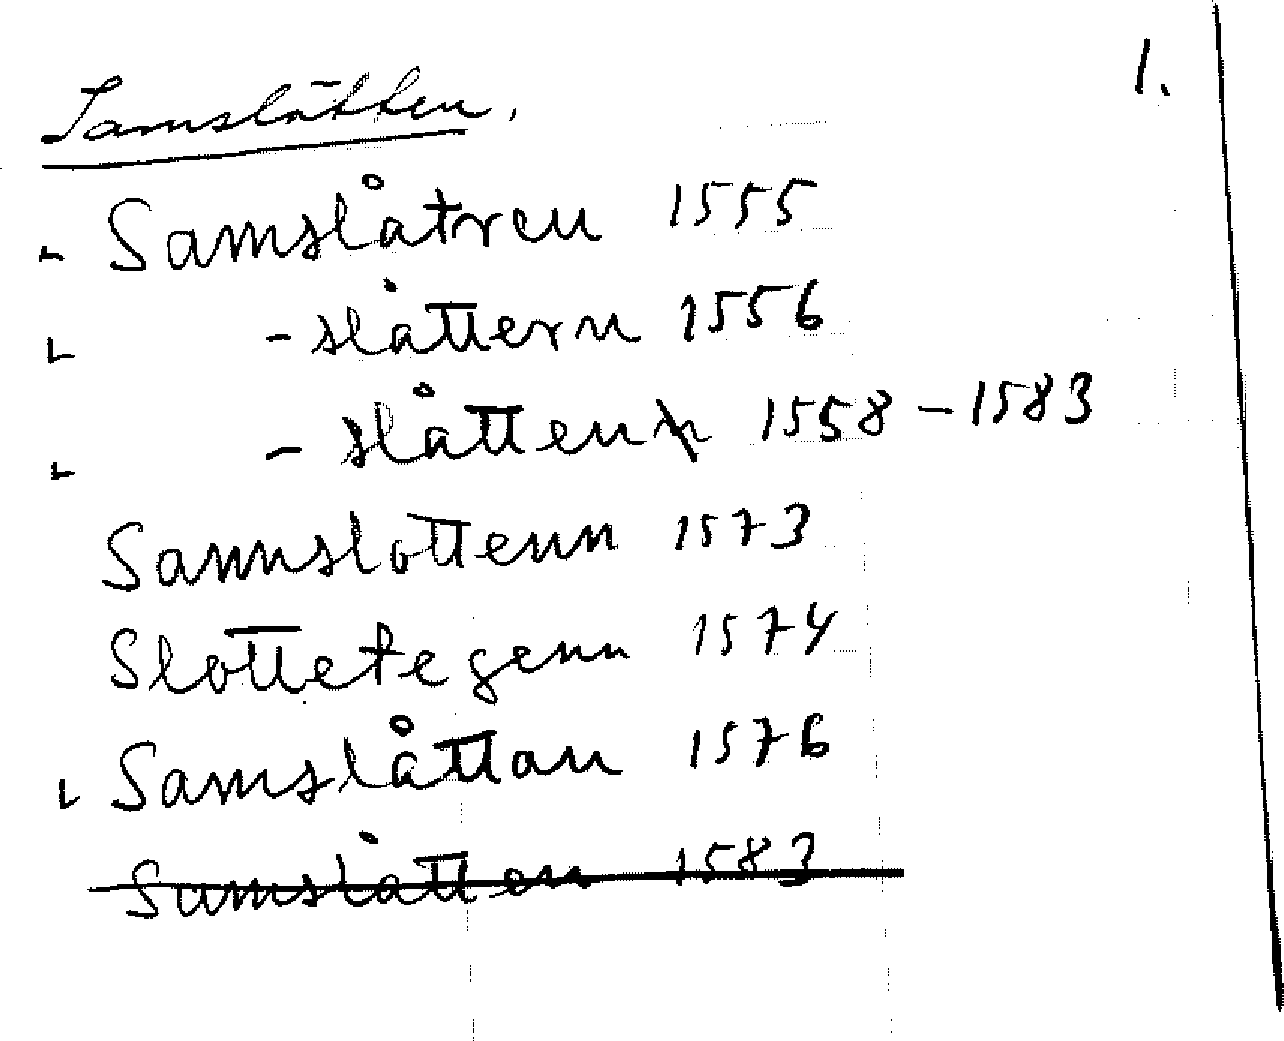 1.
Samslåtten.
- Samslåtren 1555
- -slåttern 1556
- -slåtten 1558-1583
Samnslottenn 1573
Slottetegenn 1574
Samslåttan 1576
Samslåtten 1583